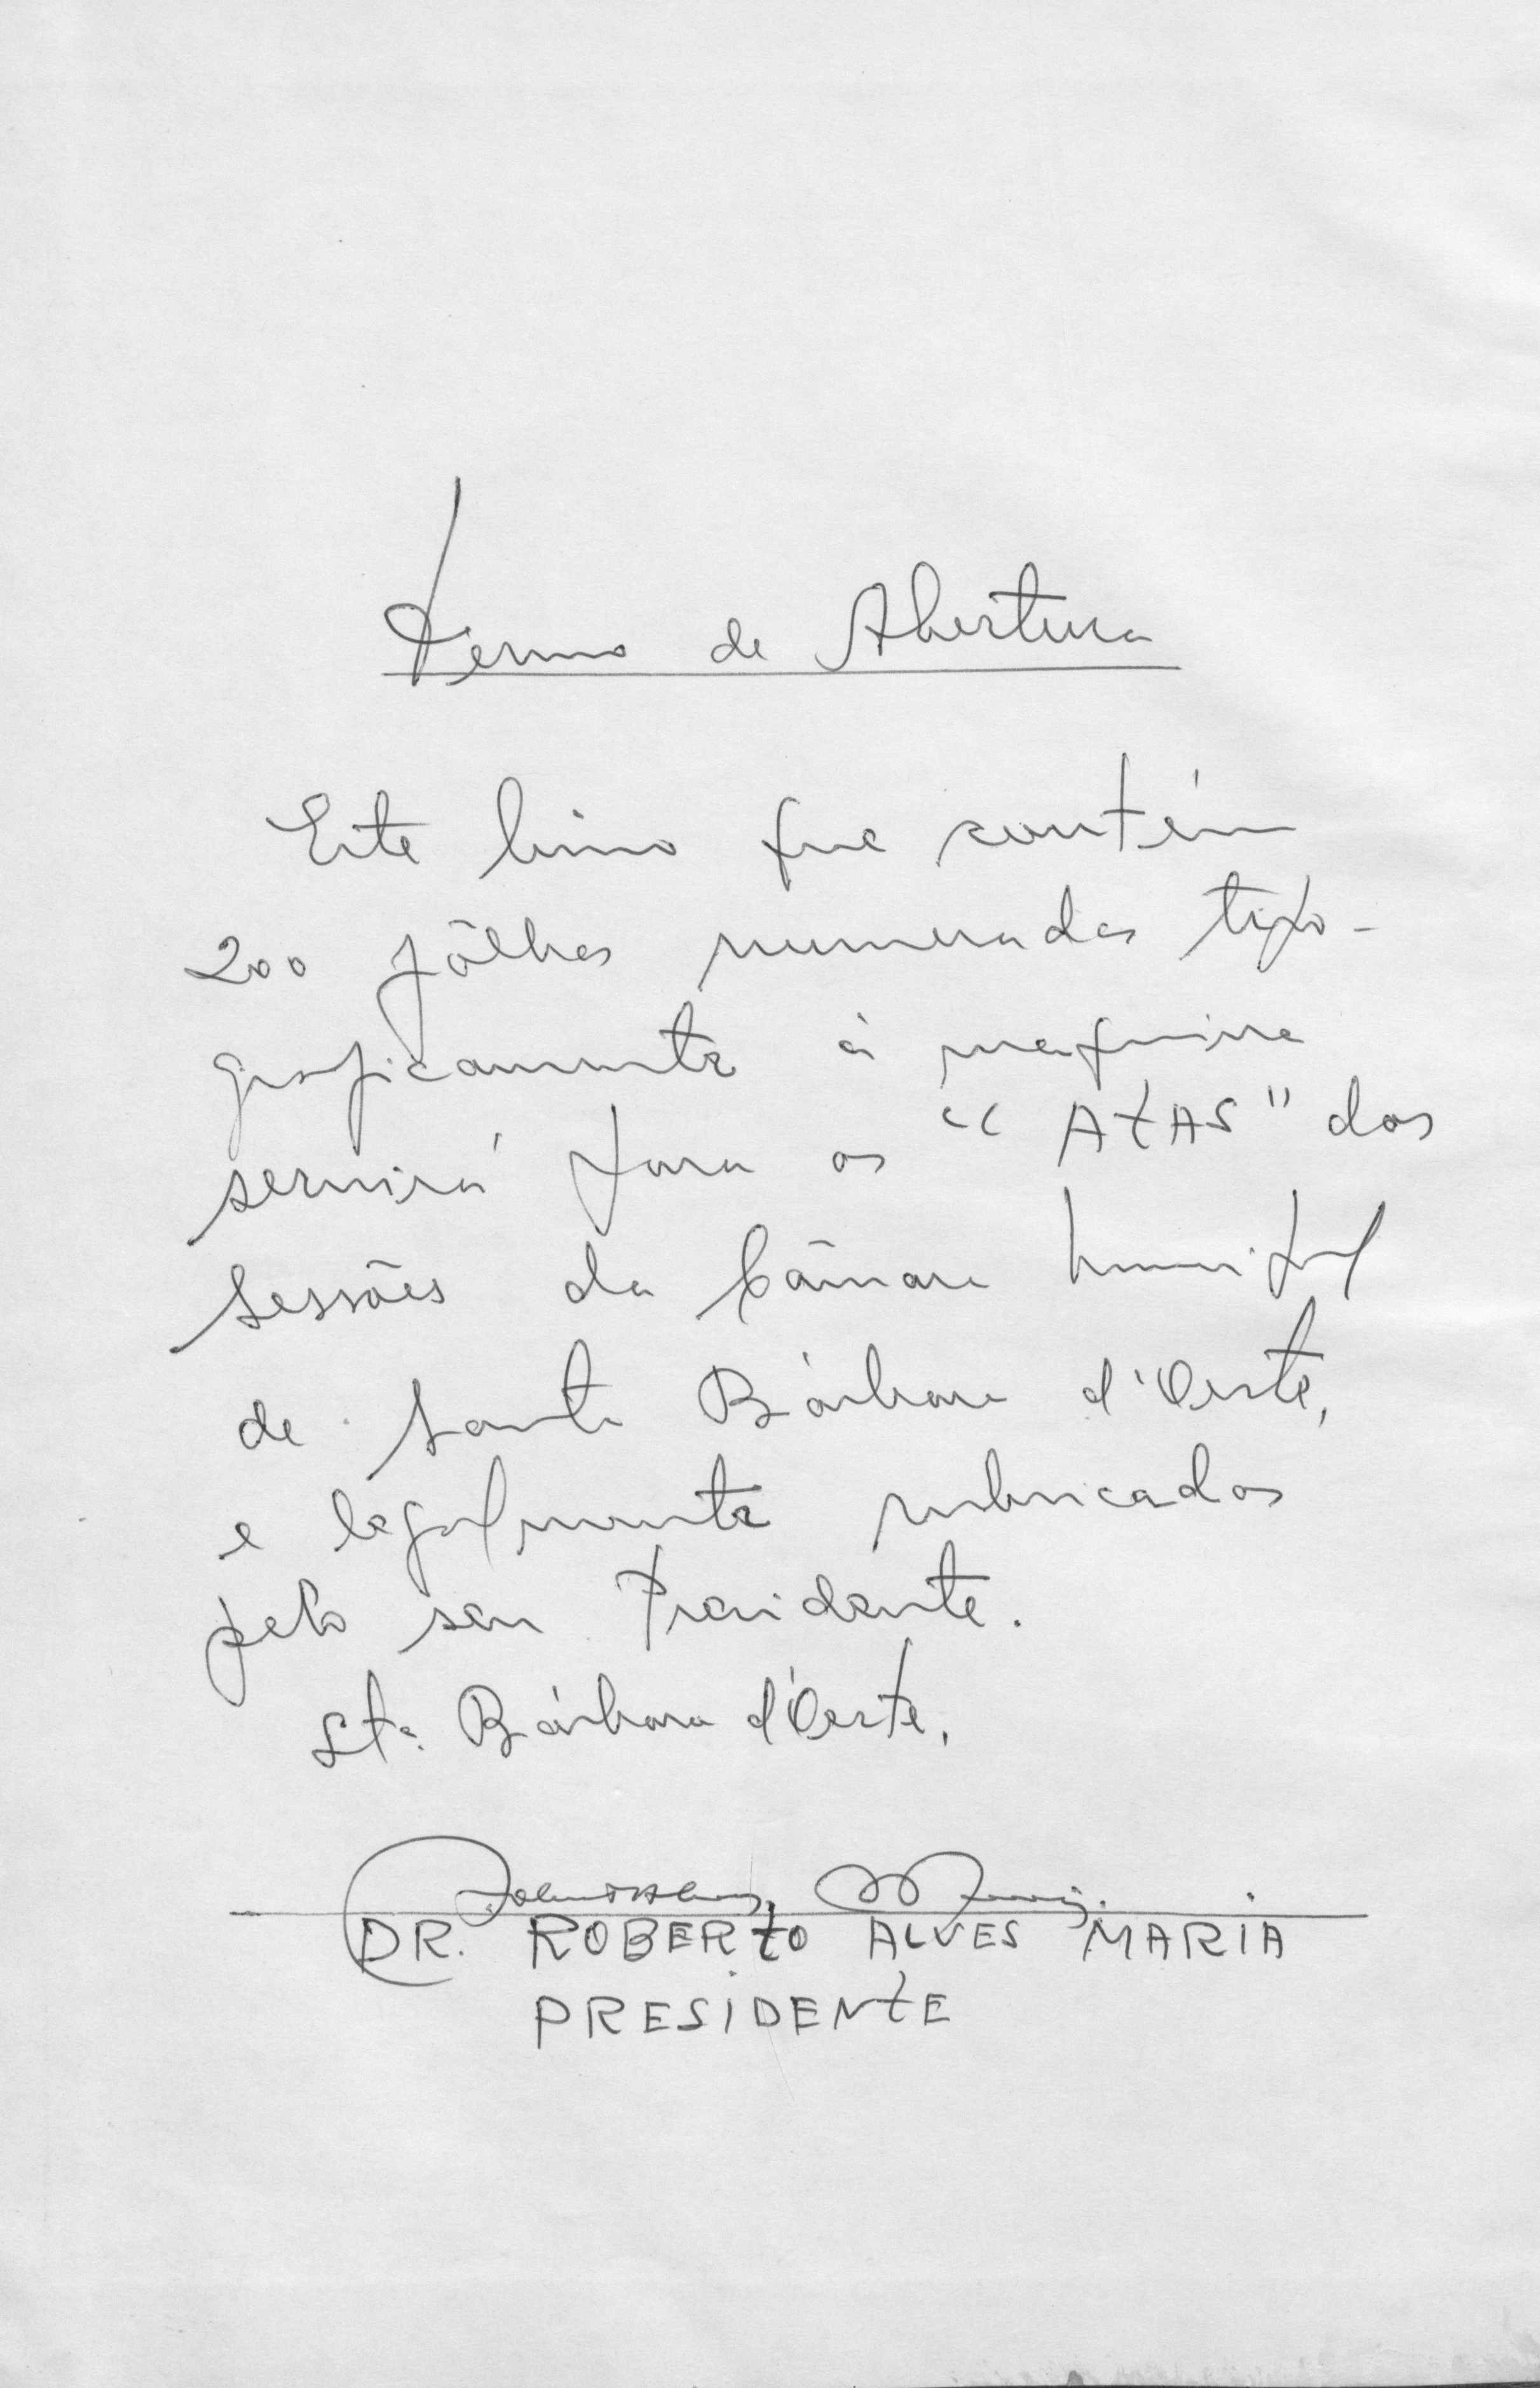 Termo de Abertura
Este livro que contém
200 fôlhas numeradas tipo-
graficamente à maquina
servirá para as "ATAS" das
Sessões da Câmara Municipal
de Santa Bárbara d'Oeste,
e legalmente rubricadas
pelo seu Presidente.
Sta. Bárbara d'Oeste,
DR. ROBERTO ALVES MARIA
PRESIDENTE